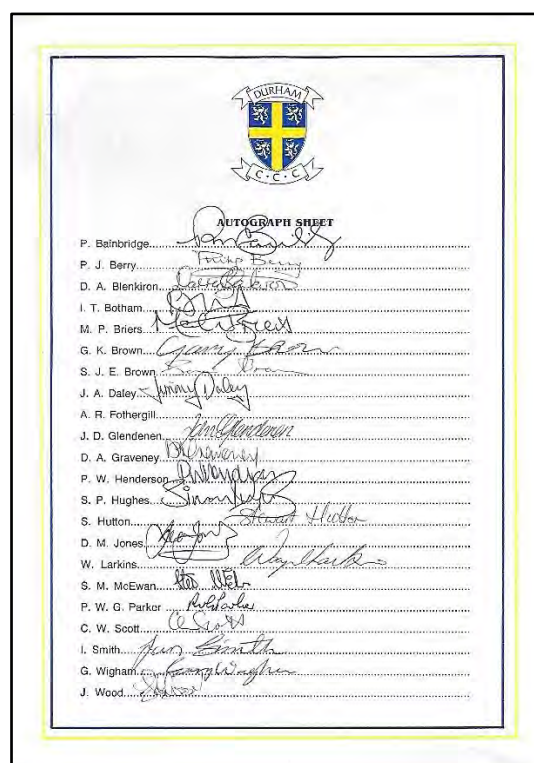 DURHAM
C·C·C
AUTOGRAPH SHEET
P. Bainbridge
P. J. Berry Philip Berry
D. A. Blenkiron
I. T. Botham
M. P. Briers
G. K. Brown Garry Brown
S. J. E. Brown
J. A. Daley Jimmy Daley
A. R. Fothergill
J. D. Glendenen John Glendenen
D. A. Graveney DAGraveney
P. W. Henderson
S. P. Hughes
S. Hutton Stewart Hutton
D. M. Jones
W. Larkins Wayne Larkins
S. M. McEwan
P. W. G. Parker
C. W. Scott C Scott
I. Smith Ian Smith
G. Wigham
J. Wood